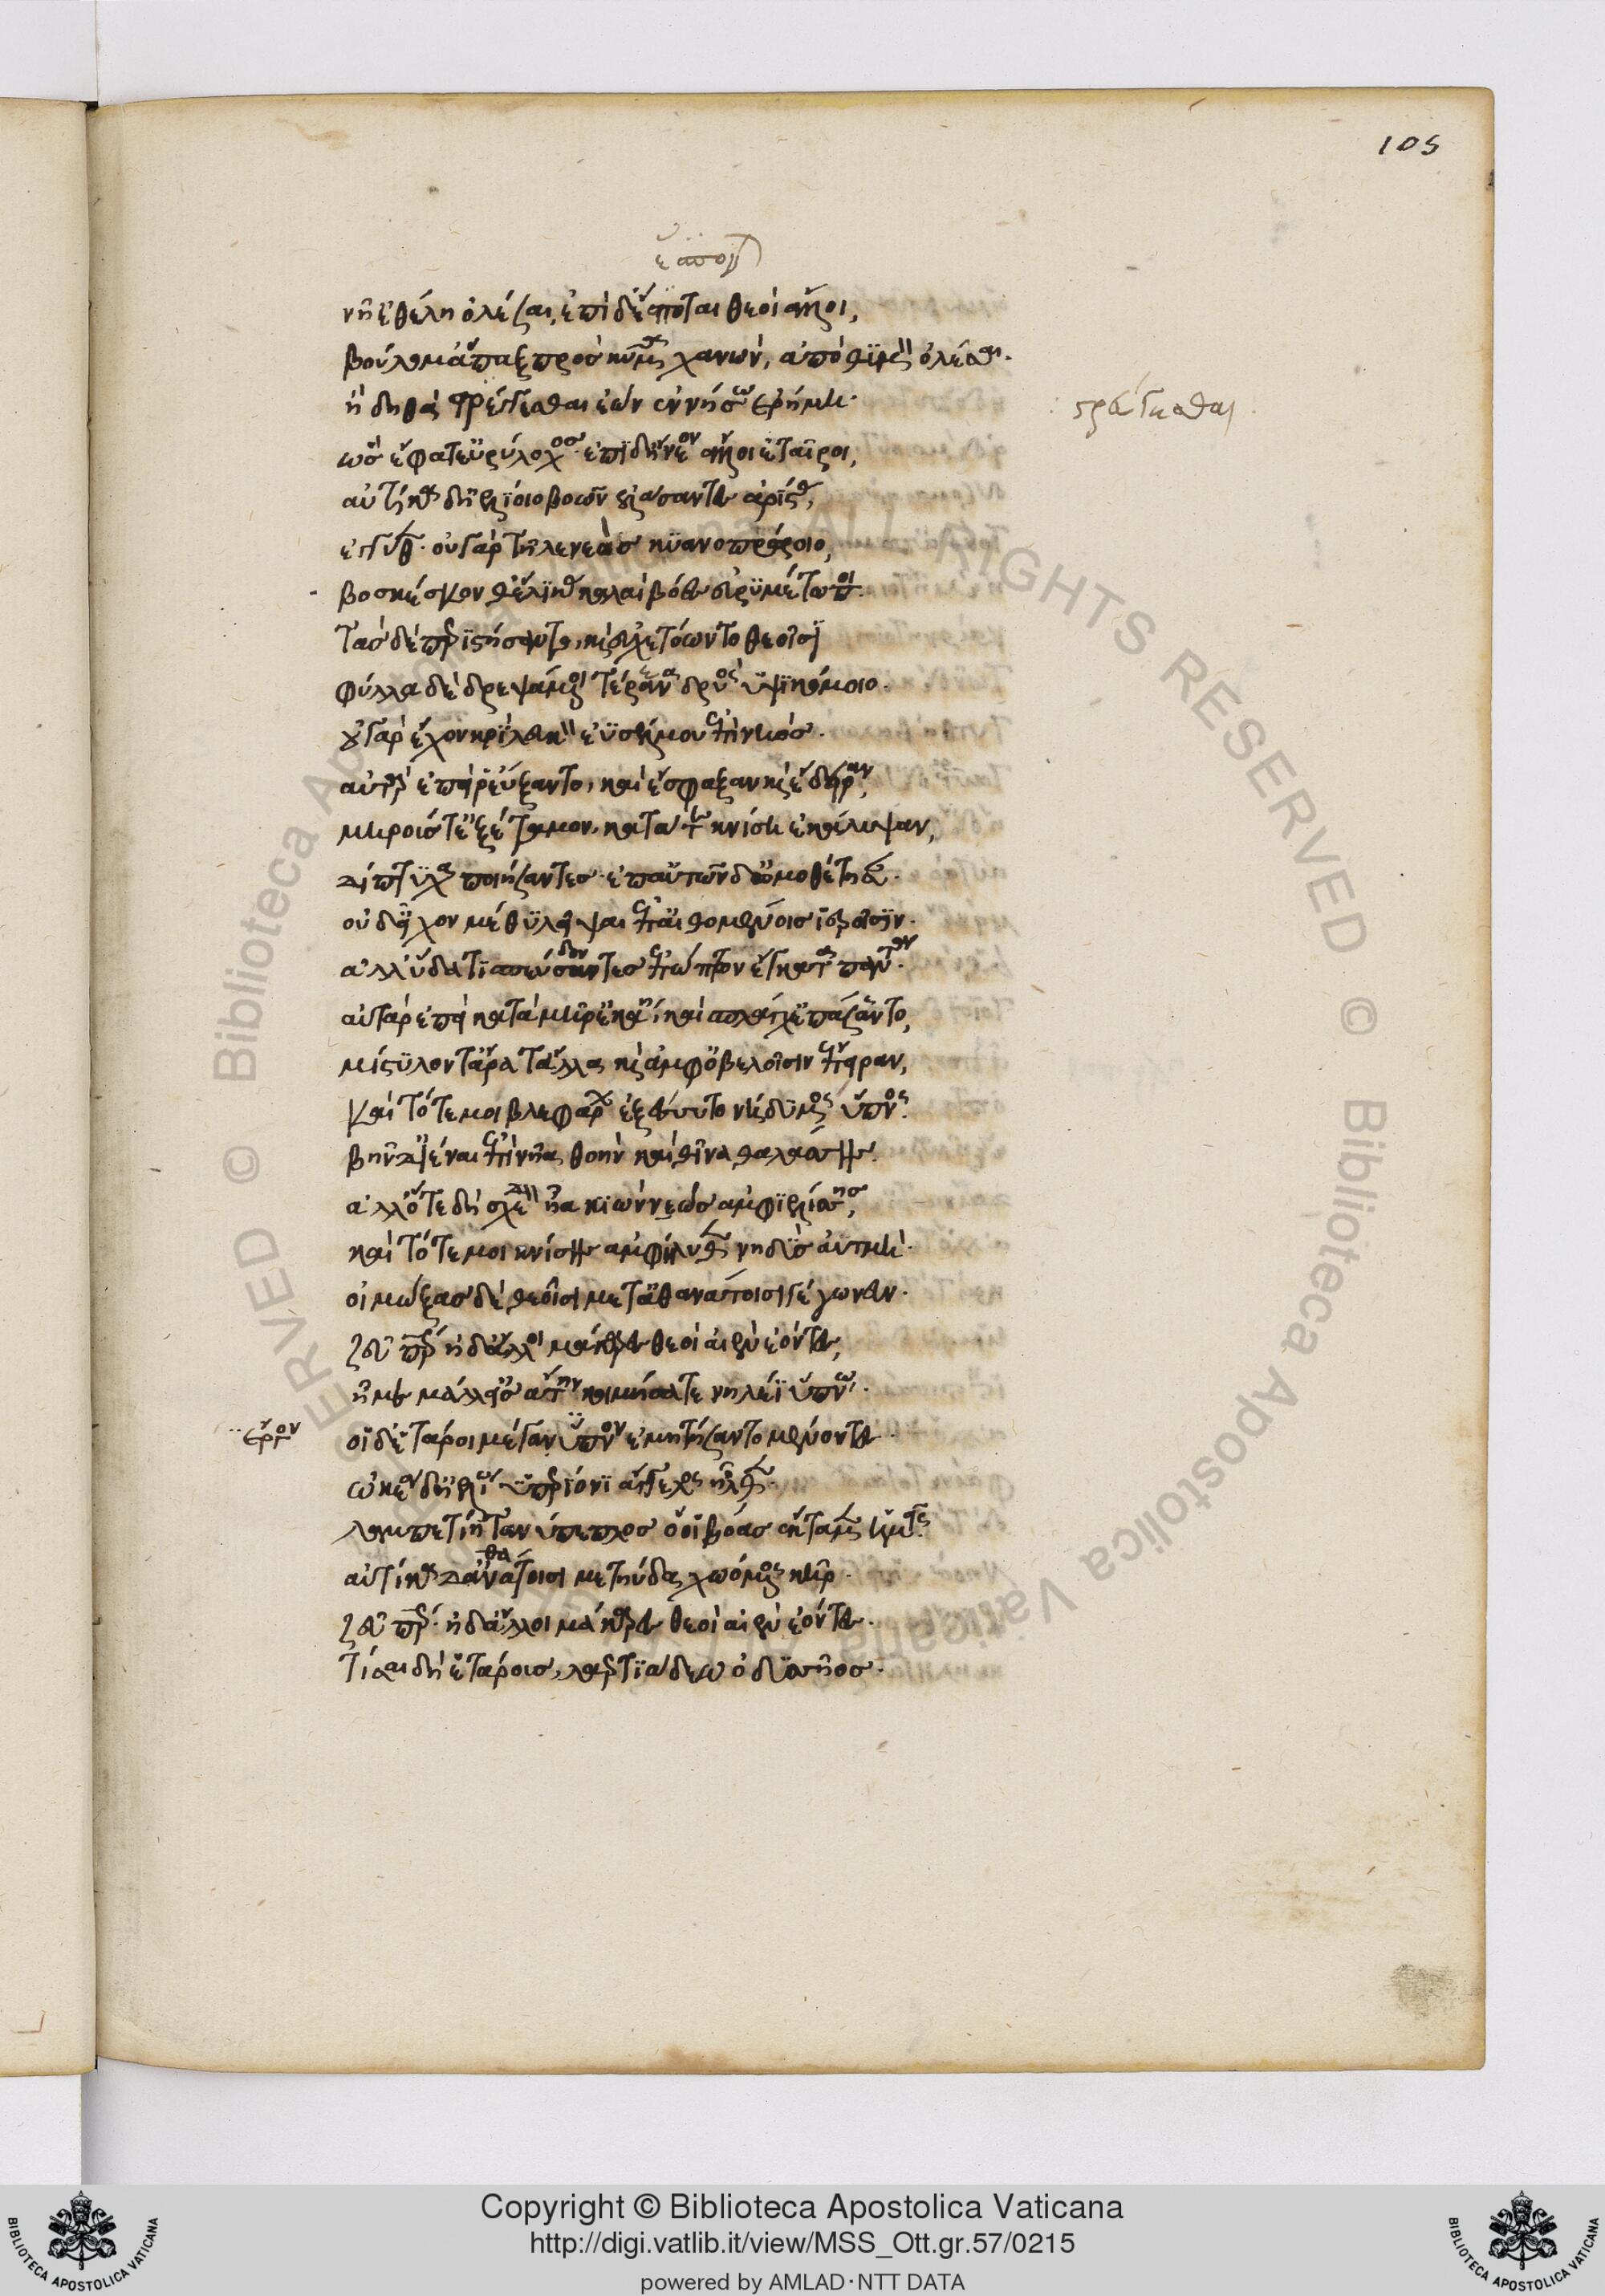 105
νῆ ἐθέλη ὀλέσαι, ἐπὶ δ' ἕσπωνται θεοὶ ἄλλοι,
βούλομ' ἅπαξ πρὸς κῦμα χανὼν, ἀπὸ θυμὸν ὀλέσσαι.
ἢ δηθὰ στρεύγεσθαι ἐὼν ἐν νήσω ἐρήμη.
στράγγεσθαι
ὣς ἔφατ' εὐρύλοχος· ἐπὶ δ' ἤνεον ἄλλοι ἑταῖροι,
αὐτίκα δ' ἠελίοιο βοῶν ἐλάσαντες ἀρίστας,
ἐγγύθεν· οὐ γὰρ τῆλε νεὸς κυανοπρώροιο,
βοσκέσκονθ' ἕλικες καλαὶ βόες εὐρυμέτωποι.
τὰς δὲ περιστήσαντο, καὶ εὐχετόωντο θεοῖσι
φύλλα δὲ δρεψάμενοι τέρενα δρυὸς ὑψικόμοιο.
οὐ γὰρ ἔχον κρῖ λευκὸν ἐϋσσέλμου ἐπὶ νηός.
αὐτὰρ ἐπεί ῥ' εὔξαντο, καὶ ἔσφαξαν καὶ ἔδειραν,
μηρούς τ' ἐξέταμον, κατά τε κνίσση ἐκάλυψαν,
δίπτυχα ποιήσαντες· ἐπ' αὐτῶν δ' ὠμοθέτησαν.
οὐδ' εἶχον μέθυ λεῖψαι ἐπ' αἰθομένοις ἱεροῖσιν.
ἀλλ' ὕδατι σπένδοντες ἐπώπτων ἔγκατα πάντα.
αὐτὰρ ἐπεὶ κατὰ μῆρ' ἐκάη, καὶ σπλάγχν' ἐπάσαντο,
μίστυλόν τ' ἄρα τἄλλα καὶ ἀμφ' ὀβελοῖσιν ἔπειραν,
καὶ τότε μοι βλεφάρων ἐξέσσυτο νήδυμος ὕπνος.
βῆν δ' ἰέναι ἐπὶ νῆα θοὴν καὶ θῖνα θαλάσσης.
ἀλλ' ὅτε δὴ σχεδὸν ἦα κιὼν νεὸς ἀμφιελίσσης,
καὶ τότε με κνίσσης ἀμφήλυθεν ἡδὺς ἀϋτμή.
οἰμώξας δὲ θεοῖσι μετ' ἀθανάτοισι γεγώνευν.
ζεῦ πάτερ ἠδ' ἄλλοι μάκαρες θεοὶ αἰὲν ἐόντες,
ἦ με μάλ' εἰς ἄτην κοιμήσατε νηλέϊ ὕπνω.
ἔργον
οἱ δ' ἕταροι μέγαν ὕπνον ἐμητίσαντο μένοντες.
ὠκέα δ' ἠελίω ὑπερίονι ἄγγελος ἦλθεν.
λαμπετίη τανύπεπλος ὅ οἱ βόας ἔκταμεν ἡμεῖς.
αὐτίκα δ' ἀθανάτοισι μετηύδα χωόμενος κῆρ.
ζεῦ πάτερ· ἠδ' ἄλλοι μάκαρες θεοὶ αἰὲν ἐόντες.
τῖσαι δὴ ἑτάρους λαερτιάδεω ὀδυσῆος.
Copyright © Biblioteca Apostolica Vaticana
http://digi.vatlib.it/view/MSS_Ott.gr.57/0215
powered by AMLAD·NTT DATA